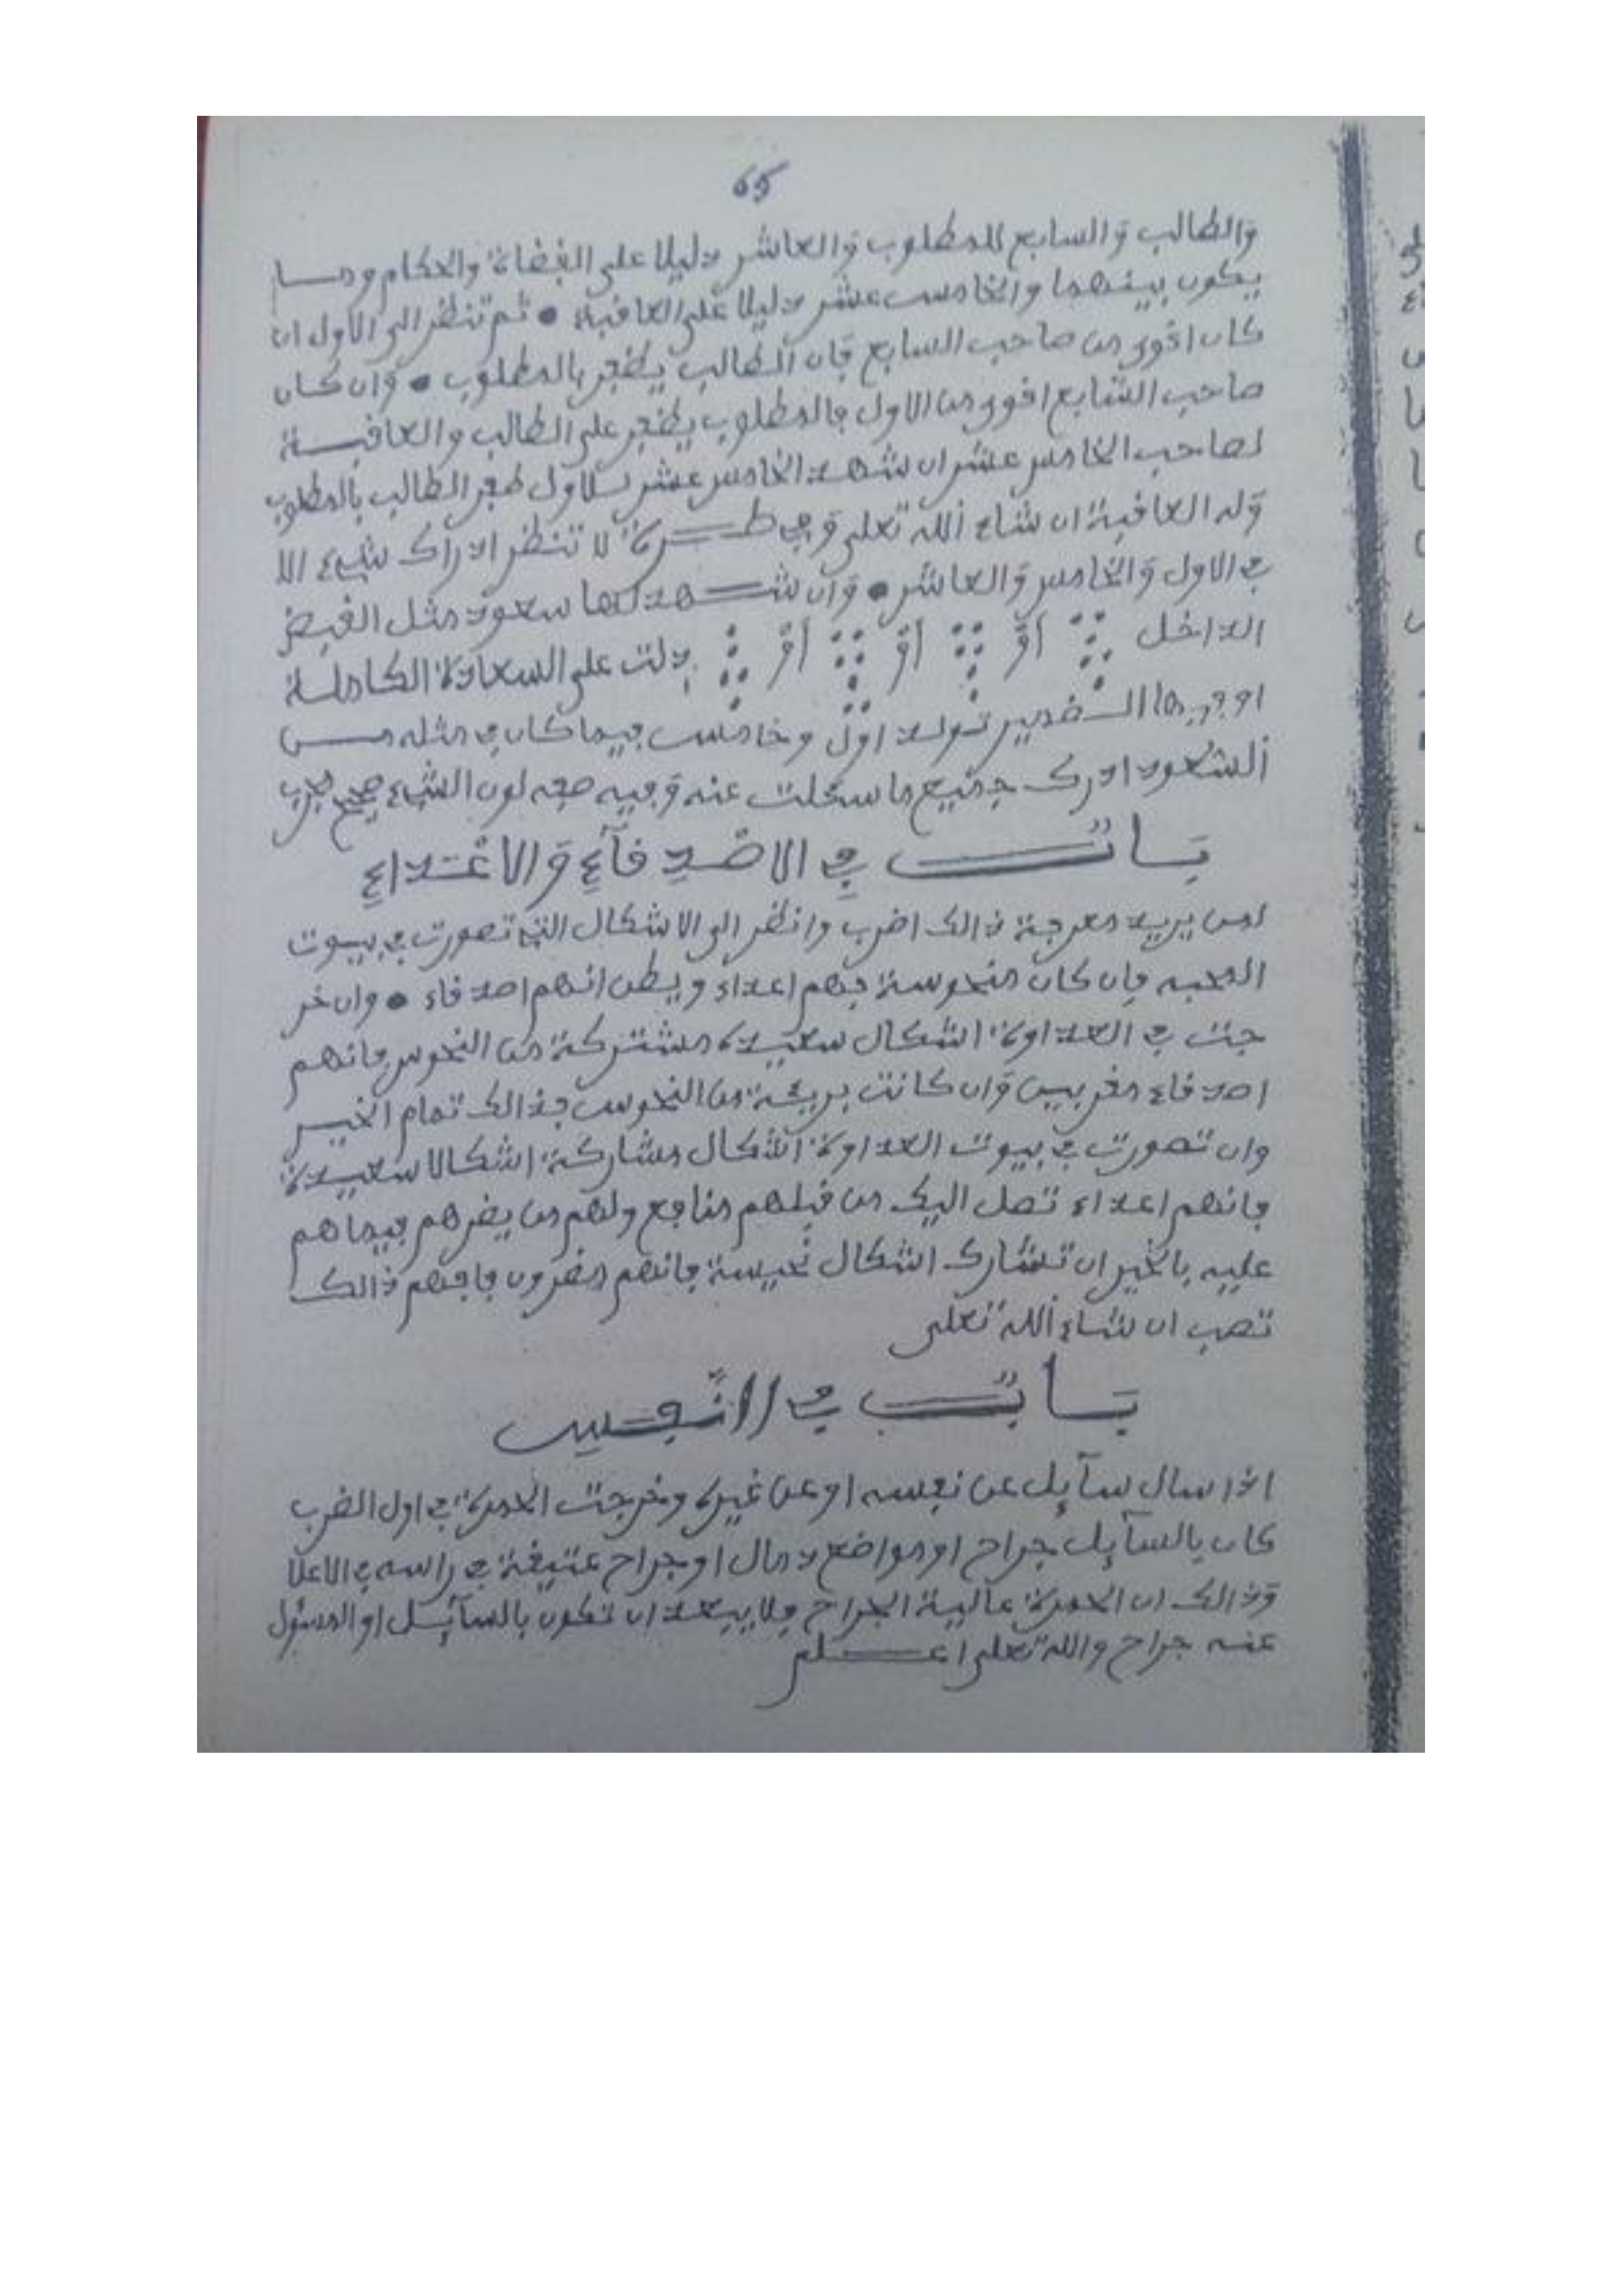 65
والطالب والسابع للمطلوب والعاشر دليلا على القضاة والحكام وما
يكون بينهما والخامس عشر دليلا على العاقبة • ثم تنظر الى الاول ان
كان اقوى من صاحب السابع فان الطالب يظفر بالمطلوب • وان كان
صاحب السابع اقوى من الاول فالمطلوب يظفر على الطالب والعاقبة
لصاحب الخامس عشر ان شهد الخامس عشر للاول ظفر الطالب بالمطلوب
وله العاقبة ان شاء الله تعلى وفي طـرة لا تنظر ادراك شيء الا
في الاول والخامس والعاشر • وان شهد لها سعود مثل القبض
الداخل او او او دلت على السعادة الكاملة
تولد اول وخامس فيما كان في مثله من
السعود ادرك جميع ما سئلت عنه وفيه صفه لون الشيء صحيح مجرب
باب في الاصدقاء والاعداء
لمن يريد معرفة ذالك اضرب وانظر الى الاشكال التي تصورت في بيوت
المحبه فان كان منحوسة فهم اعداء ويظن انهم اصدقاء • وان خر
جت في العداوة اشكال سعيدة مشتركة من النحوس فانهم
اصدقاء مقربين وان كانت بريئة من النحوس فذالك تمام الخير
وان تصورت في بيوت العداوة اشكال مشاركة اشكالا سعيدة
فانهم اعداء تصل اليك من قبلهم منافع ولهم من يضرهم فيما هم
عليه بالخير ان تشارك اشكال نحيسة فانهم مضرون فافهم ذالك
تصب ان شاء الله تعلى
باب في الانفس
اذا سال سآيل عن نفسه او عن غيره وخرجت الحمرة في اول الضرب
كان بالسآيل جراح او مواضع دمال او جراح عتيقة في راسه في الاعلا
وذالك ان الحمرة عالية الجراح فلا يبعد ان تكون بالسآيل او المسئول
عنه جراح والله تعلى اعلم